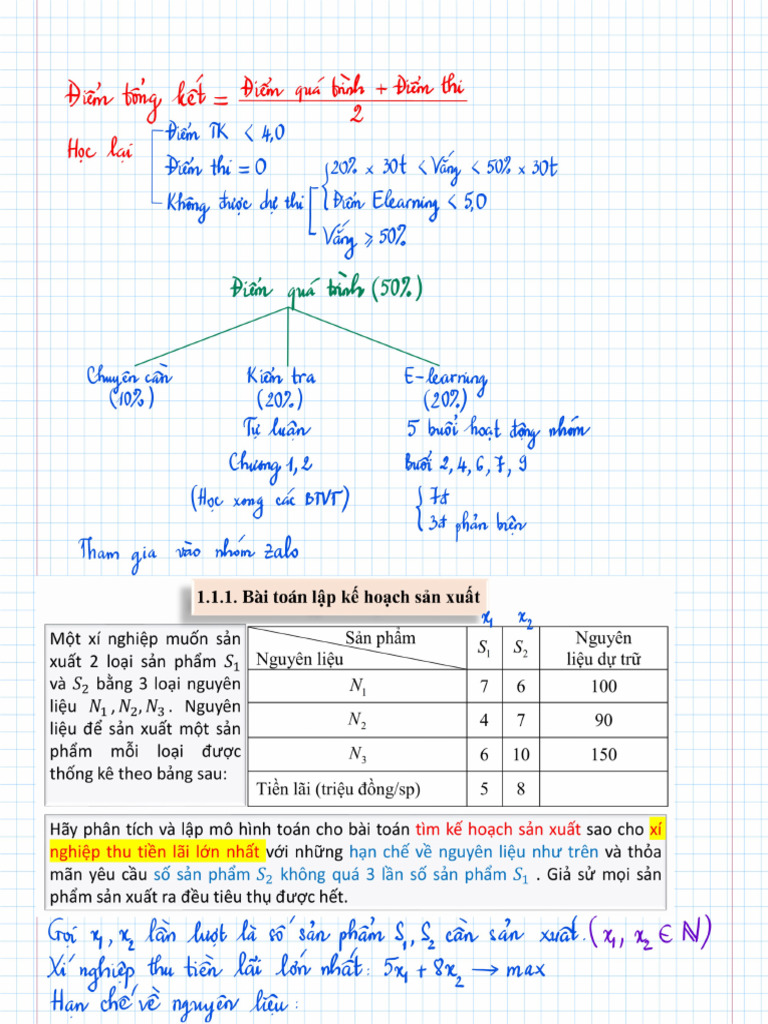 Điểm tổng kết = (Điểm quá trình + Điểm thi) / 2
Học lại
Điểm TK < 4,0
Điểm thi = 0
Không được dự thi
20% × 30t < Vắng < 50% × 30t
Điểm Elearning < 5,0
Vắng ⩾ 50%
Điểm quá trình (50%)
Chuyên cần
(10%)
Kiểm tra
(20%)
Tự luận
Chương 1, 2
(Học xong các BTVT)
E-learning
(20%)
5 buổi hoạt động nhóm
Buổi 2, 4, 6, 7, 9
7đ
3đ phản biện
Tham gia vào nhóm Zalo
1.1.1. Bài toán lập kế hoạch sản xuất
Một xí nghiệp muốn sản
xuất 2 loại sản phẩm S₁
và S₂ bằng 3 loại nguyên
liệu N₁, N₂, N₃. Nguyên
liệu để sản xuất một sản
phẩm mỗi loại được
thống kê theo bảng sau:
x₁ x₂
Sản phẩm
Nguyên liệu
S₁ S₂
Nguyên
liệu dự trữ
N₁ 7 6 100
N₂ 4 7 90
N₃ 6 10 150
Tiền lãi (triệu đồng/sp) 5 8
Hãy phân tích và lập mô hình toán cho bài toán tìm kế hoạch sản xuất sao cho xí
nghiệp thu tiền lãi lớn nhất với những hạn chế về nguyên liệu như trên và thỏa
mãn yêu cầu số sản phẩm S₂ không quá 3 lần số sản phẩm S₁ . Giả sử mọi sản
phẩm sản xuất ra đều tiêu thụ được hết.
Gọi x₁, x₂ lần lượt là số sản phẩm S₁, S₂ cần sản xuất. (x₁, x₂ ∈ ℕ)
Xí nghiệp thu tiền lãi lớn nhất: 5x₁ + 8x₂ → max
Hạn chế về nguyên liệu: